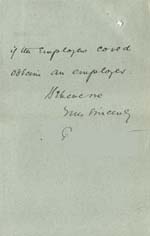 if the employer could
obtain an employee
Yours sincerely